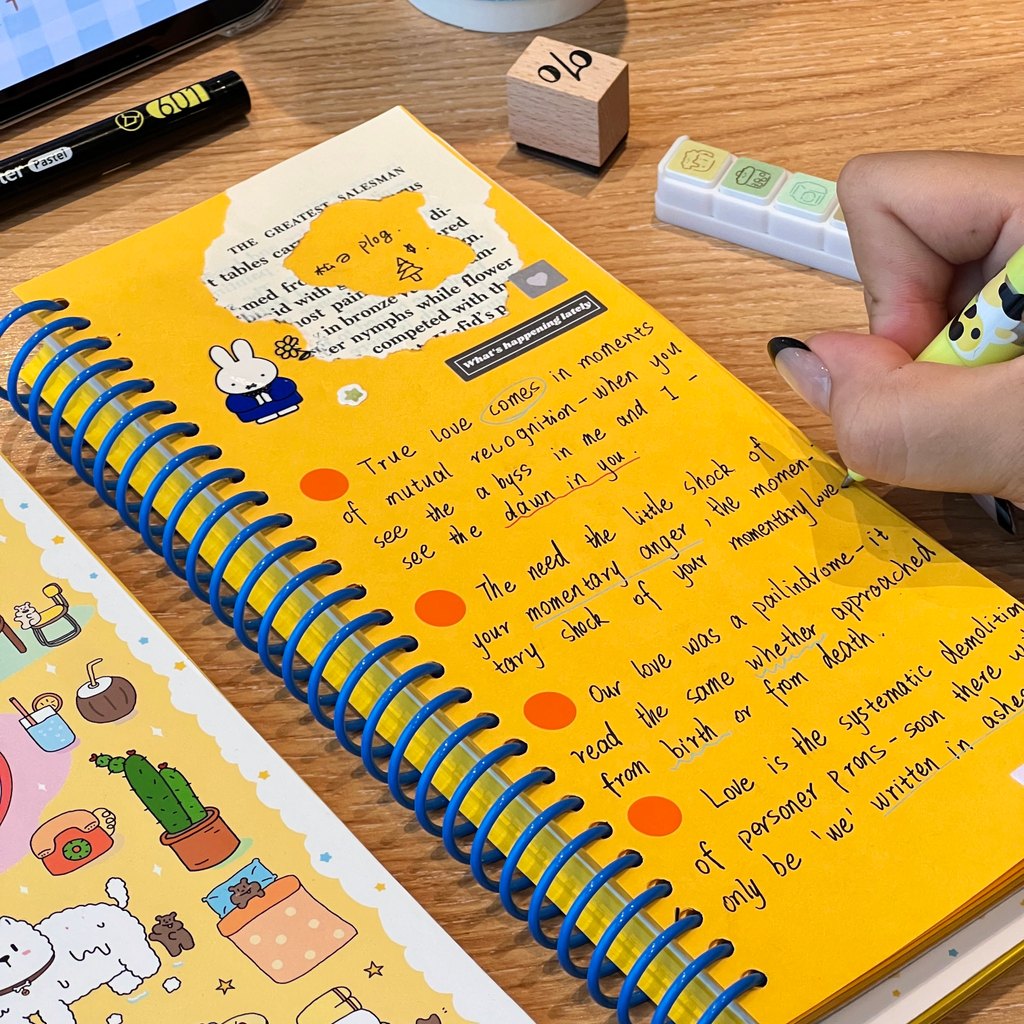 601
ter Pastel
%
THE GREATEST SALESMAN
t tables car
di-
red
med fr
id with
in-
ost pain
in bronze
er nymphs while flower
competed with th
Hafid's p
plog.
What's happening lately
True love comes in moments
of mutual recognition - when you
see the a byss in me and I -
see the dawn in you.
The need the little shock of
your momentary anger, the momen-
tary shock of your momentary love
Our love was a pailindrome - it
read the same whether approached
from birth or from death.
Love is the systematic demolition
of personer prons - soon there w
only be 'we' written in ashes